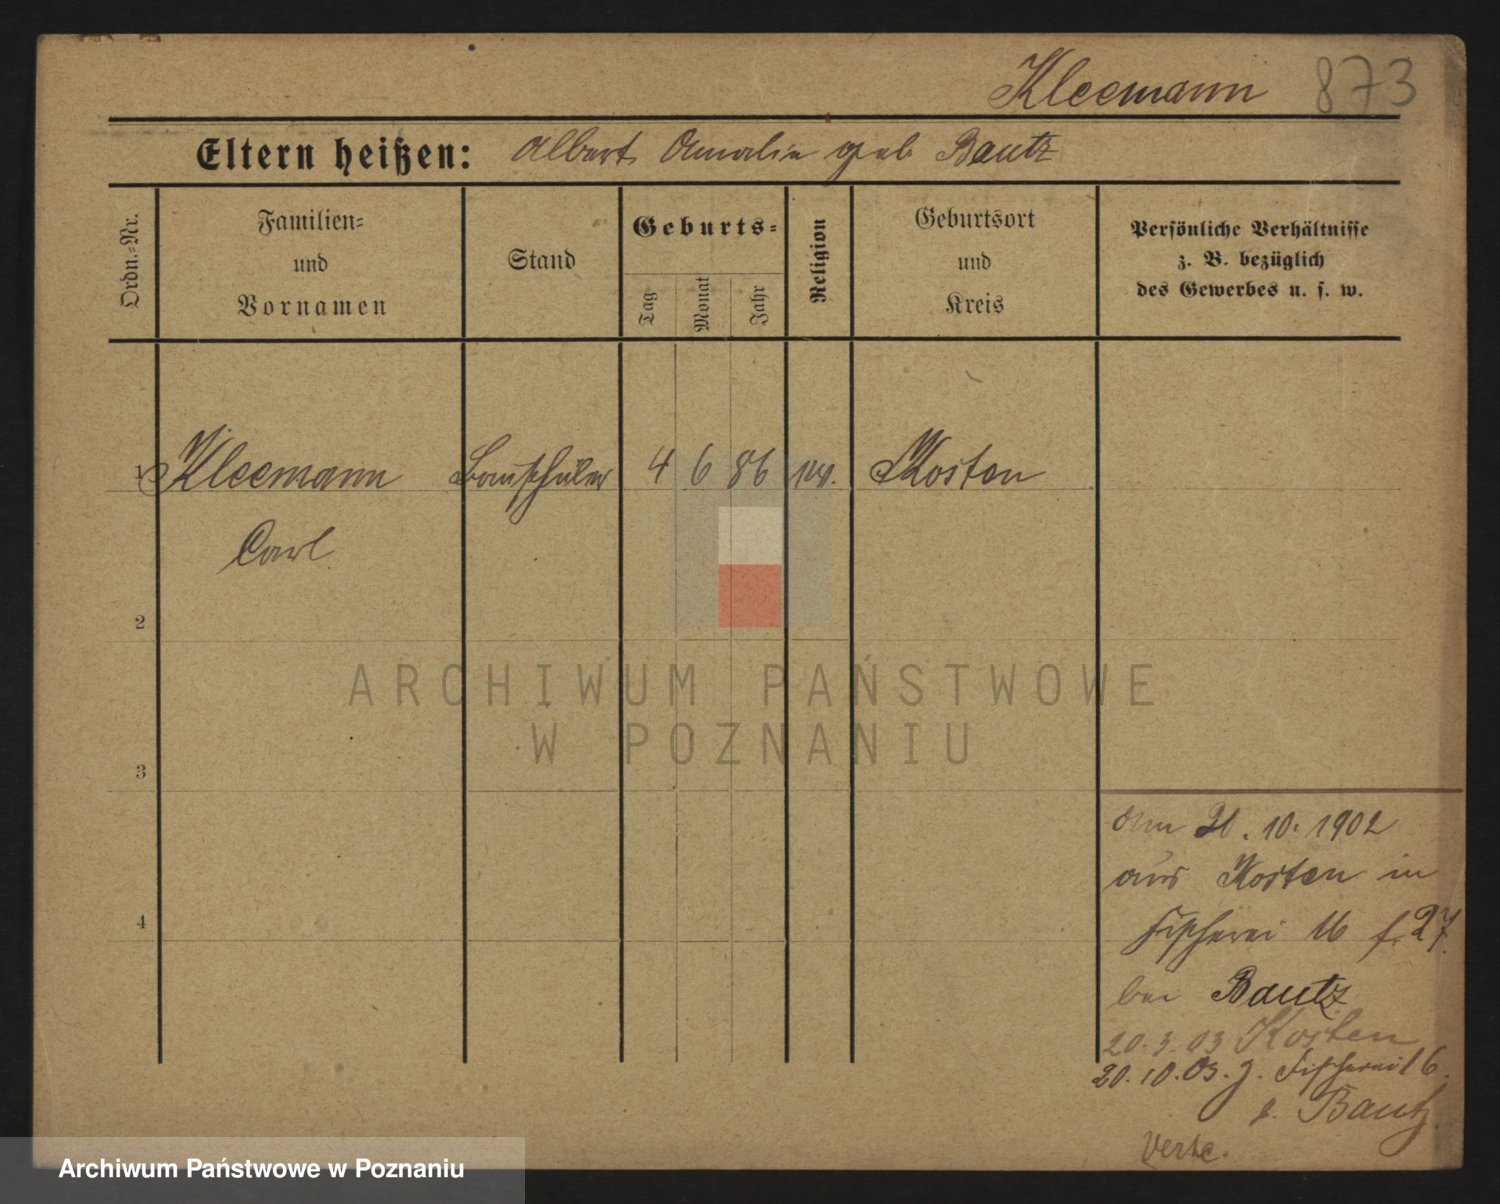 Kleemann 873
Eltern heißen: Albert, Amalie geb Bautz
Ordn.=Nr.
Familien=
und
Vornamen
Stand
Geburts=
Tag
Monat
Jahr
Religion
Geburtsort
und
Kreis
Persönliche Verhältnisse
z. B. bezüglich
des Gewerbes u. s. w.
1 Kleemann Bauschüler 4 6 86 Kosten
Carl
2
ARCHIWUM PAŃSTWOWE
W POZNANIU
3
10. 1902
aus Kosten in
Fischerei 16 27
bei Bautz
20. 3. 03 Kosten
20. 10. 03. Fischerei 16.
b. Bautz.
Verte.
Archiwum Państwowe w Poznaniu